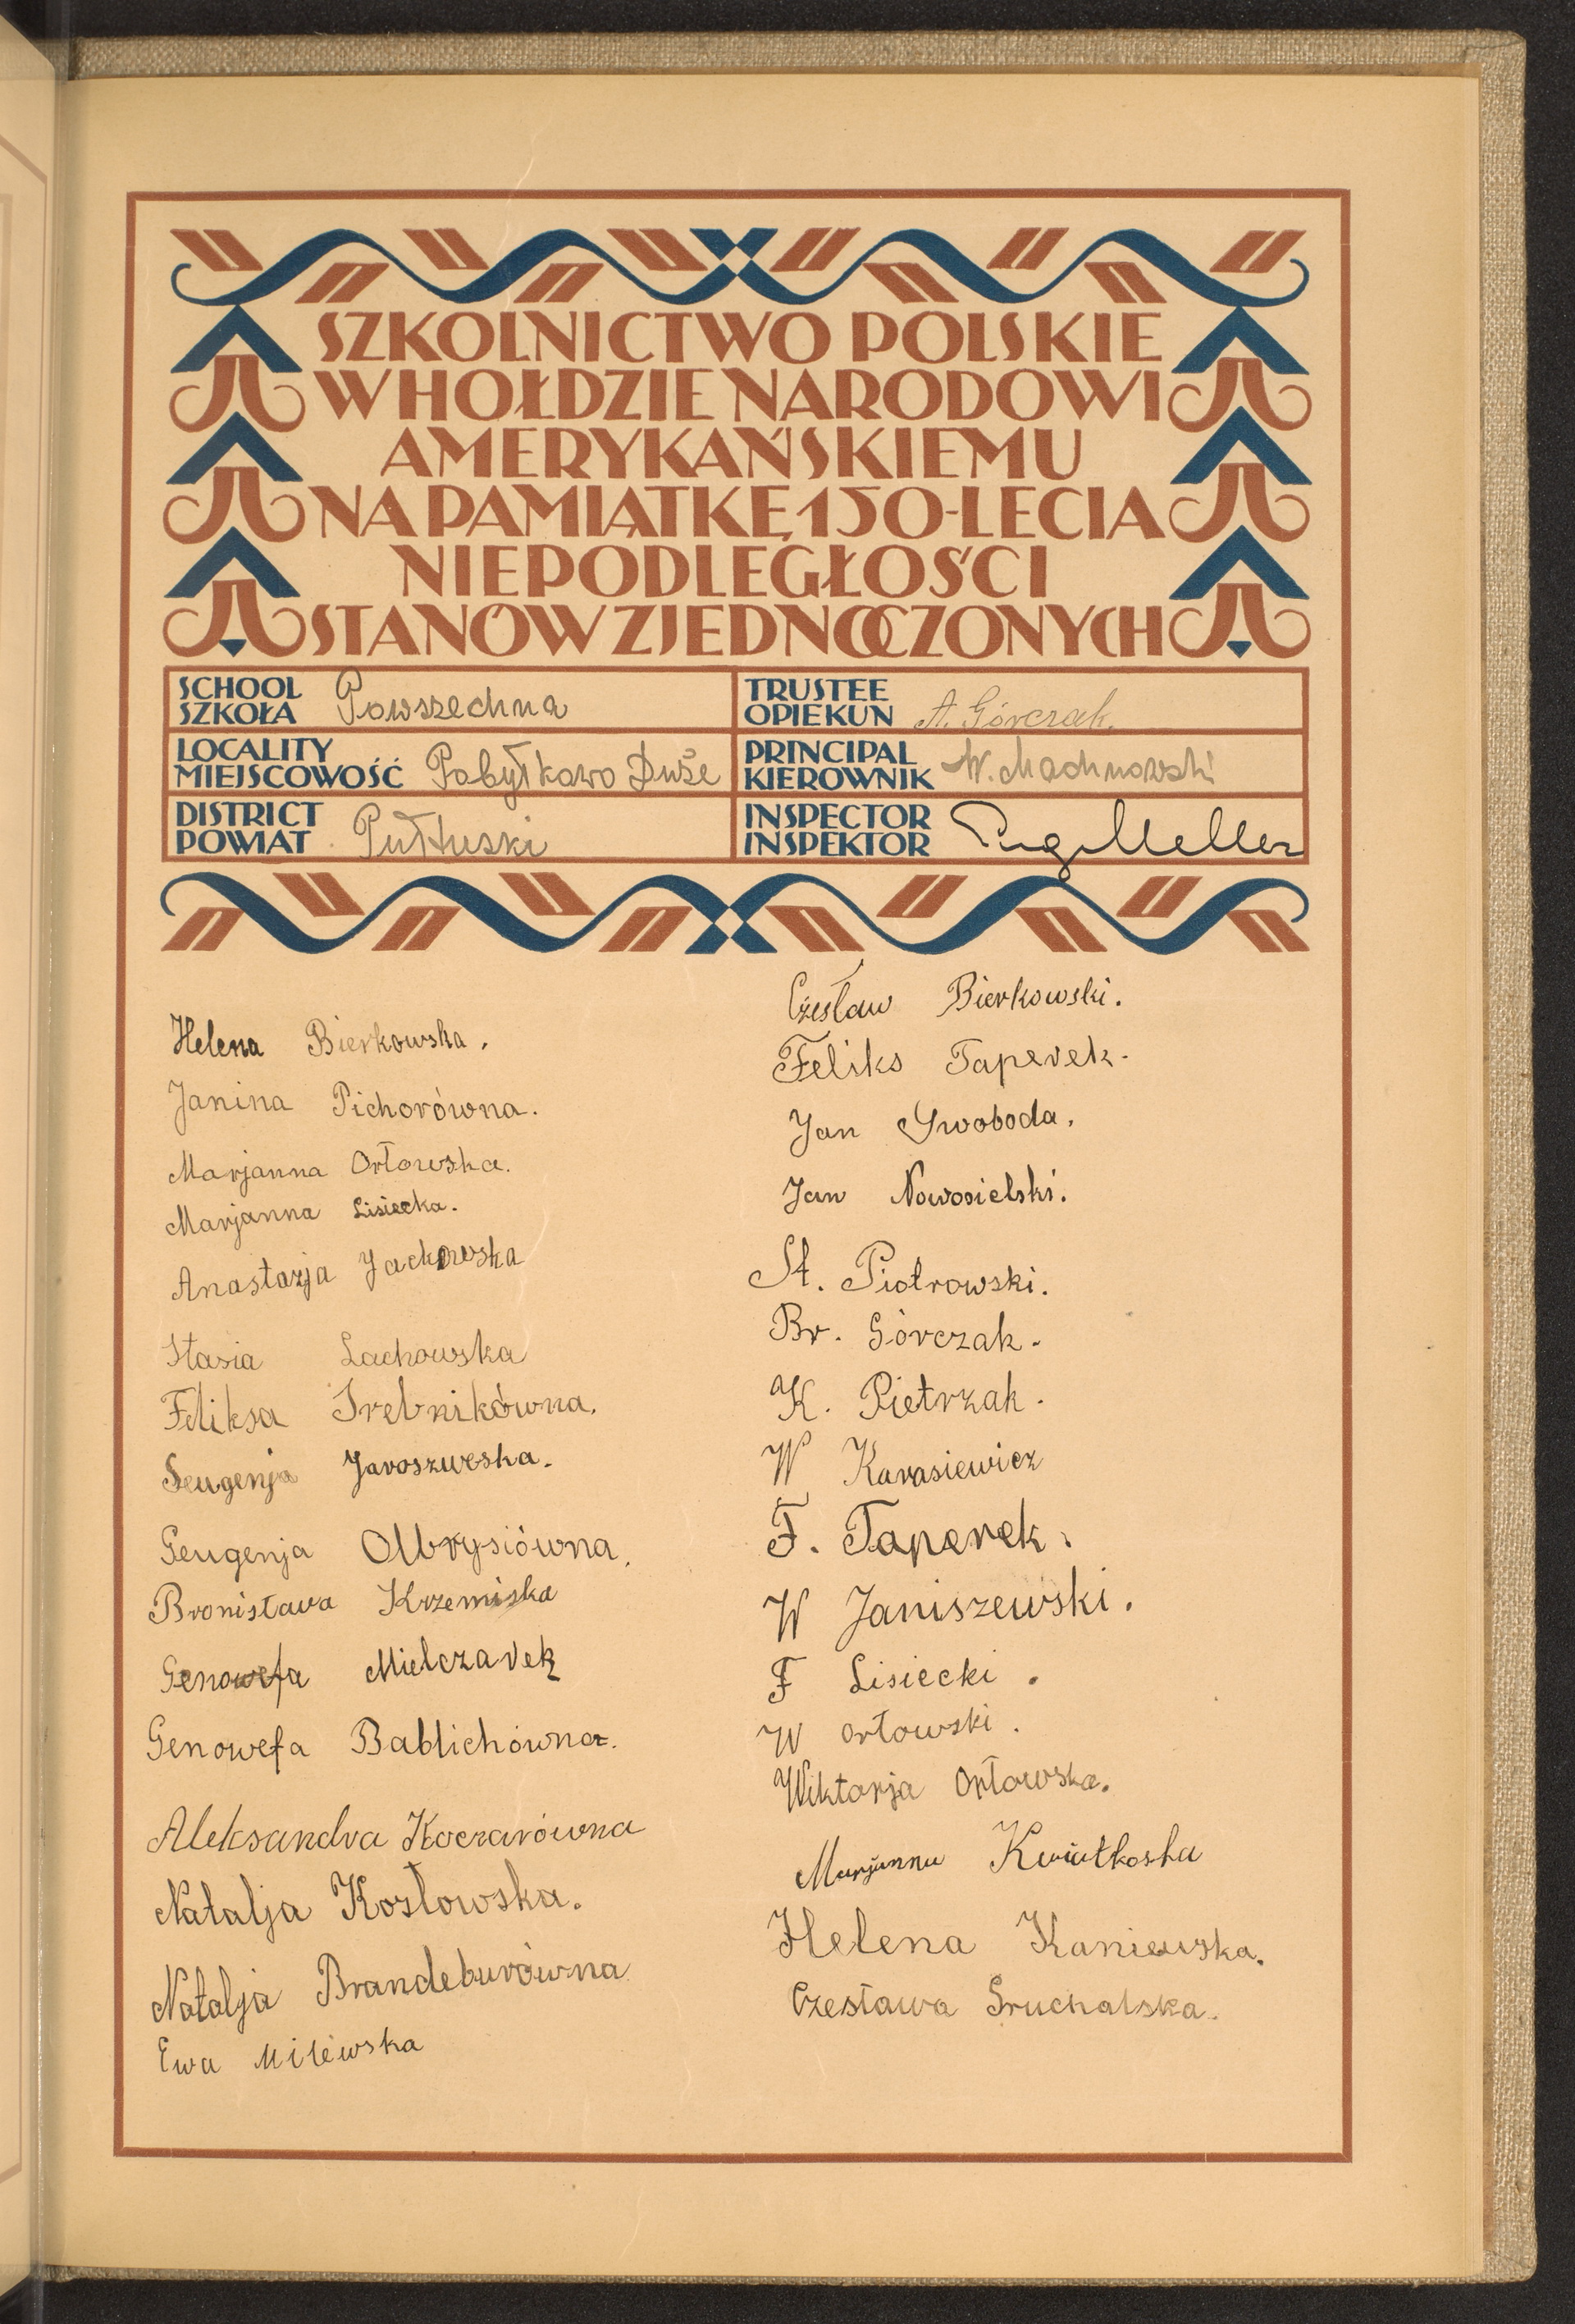 SZKOLNICTWO POLSKIE
W HOŁDZIE NARODOWI
AMERYKAŃSKIEMU
NA PAMIĄTKĘ 150-LECIA
NIEPODLEGŁOŚCI
STANÓW ZJEDNOCZONYCH
SCHOOL
SZKOŁA Powszechna
LOCALITY
MIEJSCOWOŚĆ Pobyłkowo Duże
DISTRICT
POWIAT Pułtuski
TRUSTEE
OPIEKUN A. Górczak.
PRINCIPAL
KIEROWNIK W. Machnowski
INSPECTOR
INSPEKTOR Meller
Helena Bierkowska.
Janina Pichorówna.
Marjanna Orłowska.
Marjanna Lisiecka.
Anastazja Jackowska
Stasia Lachowska
Feliksa Srebnikówna.
Jaroszweska.
Geugenja Olbrysiówna.
Bronisława Krzemiska
Genowefa Mielczarek
Genowefa Bablichówna.
Aleksandra Koczarówna
Natalja Kozłowska.
Natalja Brandeburówna
Ewa Milewska
Czesław Bierkowski.
Feliks Taperek.
Jan Swoboda.
Jan Nowosielski.
St. Piotrowski.
Br. Górczak.
K. Pietrzak.
W Karasiewicz
F. Taperek.
W Janiszewski.
F Lisiecki.
W Orłowski.
Wiktorja Orłowska.
Marjanna Kwiatkoska
Helena Kaniewska.
Czesława Sruchalska.